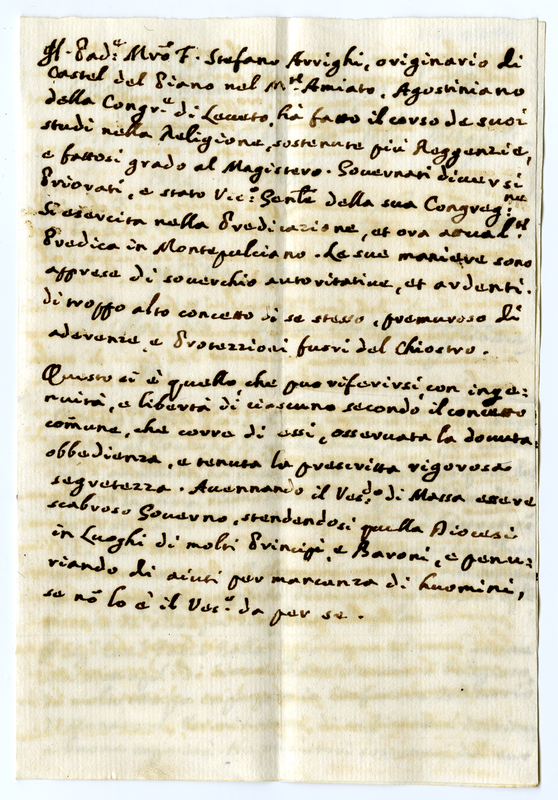 Il Pad.e Mro F. Stefano Arrighi, originario di
Castel del Piano nel M.te Amiato, Agostiniano
della Congr.e di Lecceto, hà fatto il corso de suoi
studi nella Religione, sostenute più Reggenzie,
e fattosi grado al Magistero. Governati diversi
Priorati, e stato Vic.o Genle della sua Congreg.ne
Si esercita nella Predicazione, et ora actual.te
Predica in Montepulciano. Le sue maniere sono
apprese di soverchio autoritative, et ardenti.
di troppo alto concetto di se stesso, premuroso di
aderenze, e Protezzioni fuori del Chiostro.
Questo si è quello, che può riferirsi con inge-
nuità, e libertà di ciascuno secondo il concetto
comune, che corre di essi, osservata la dovuta
obbedienza, e tenuta la prescritta rigorosa
segretezza. Avennando il Vesc.do di Massa essere
scabroso Governo, stendendosi quella Diocesi
in Luoghi di molti Principi, e Baroni, e penu-
riando di aiuti per mancanza di huomini,
se nõ lo è il Vesc.o da per se.